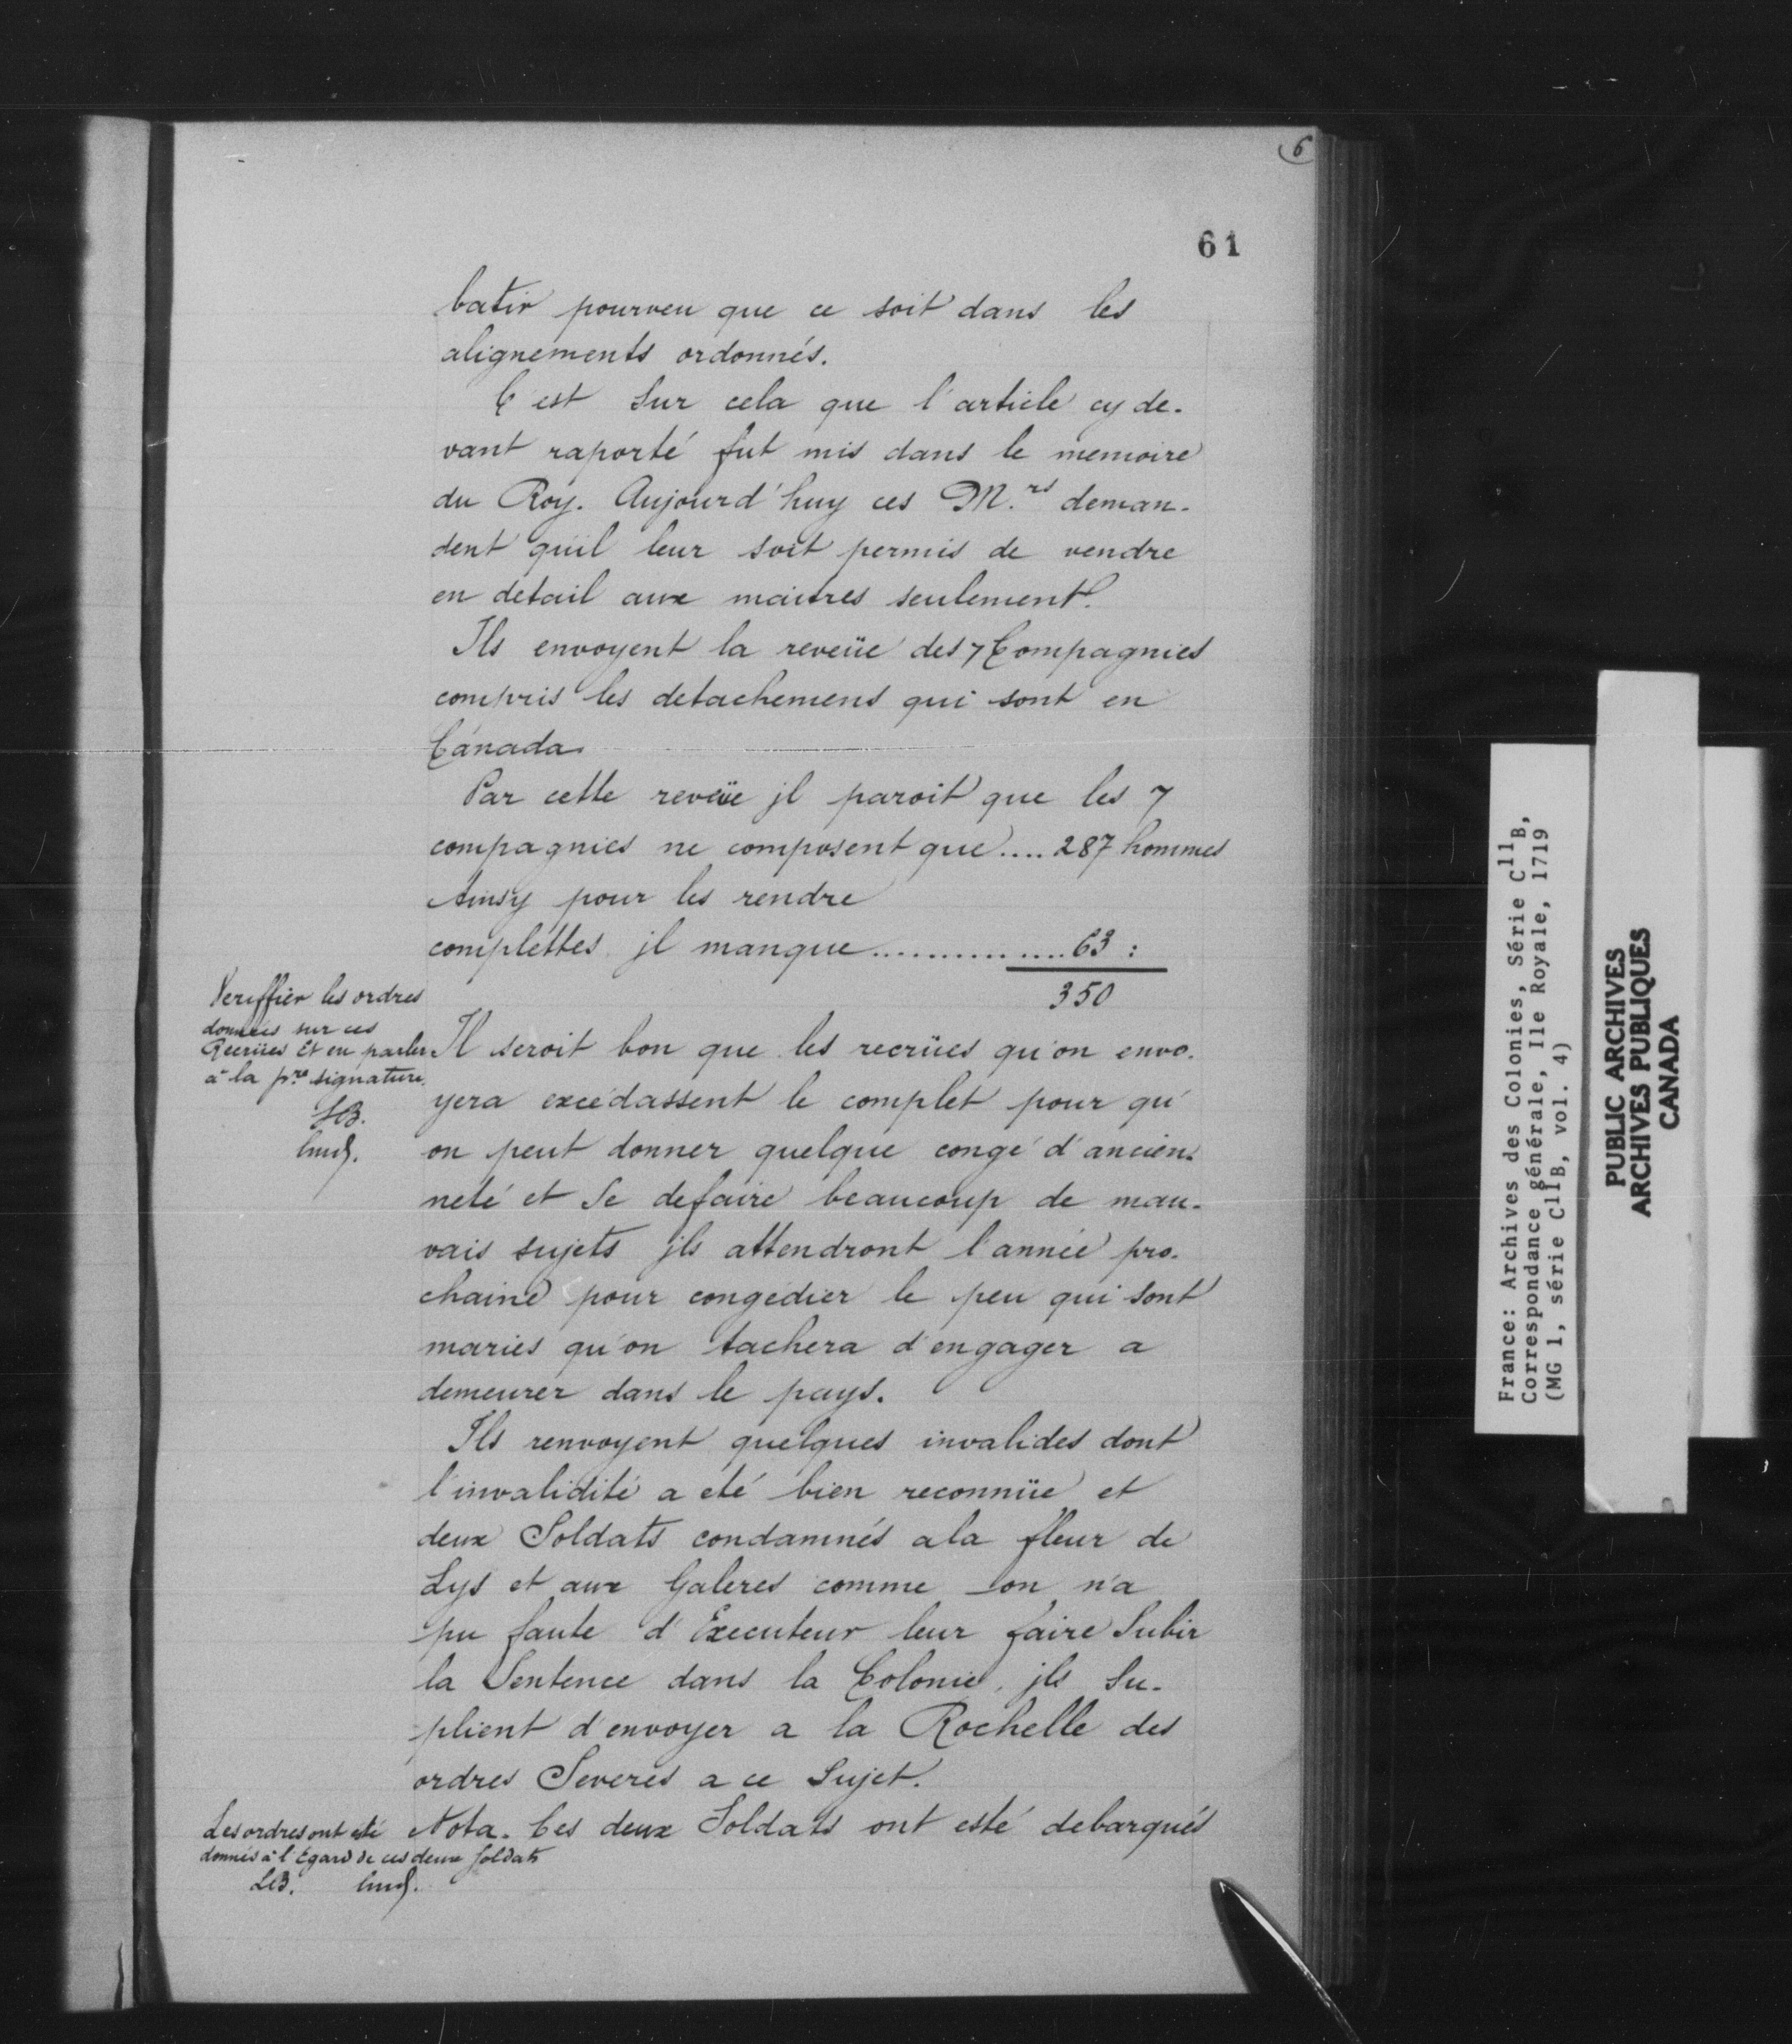 6
61
batir pourveu que ce soit dans les
alignements ordonnés.
C'est sur cela que l'article cy de-
vant raporté fut mis dans le memoire
du Roy. Aujourd'huy ces M.rs deman-
dent qu'il leur soit permis de vendre
en detail aux maitres seulement.
Ils envoyent la reveüe des 7 Compagnies
compris les detachemens qui sont en
Canada
Par cette reveüe jl paroit que les 7
compagnies ne composent que .... 287 hommes
Ainsy pour les rendre
complettes jl manque ................ 63 :
350
Veriffier les ordres
donnés sur ces
Recrües Et en parler
à la p.re signature.
LB.
Il seroit bon que les recrües qu'on envo-
yera excédassent le complet pour qu'
on peut donner quelque congé d'ancien-
neté et se defaire beaucoup de mau-
vais sujets jls attendront l'année pro-
chaine pour congédier le peu qui sont
mariés qu'on tachera d'engager a
demeurer dans le pays.
Ils renvoyent quelques invalides dont
l'invalidité a eté bien reconnüe et
deux Soldats condamnés a la fleur de
Lys et aux Galeres comme on n'a
pu faute d'Executeur leur faire Subir
la Sentence dans la Colonie, jls Su-
plient d'envoyer a la Rochelle des
ordres Severes a ce Sujet.
Nota. Ces deux Soldats ont esté debarqués
Les ordres ont esté
donnés à l'Egard de ces deux soldats
LB.
France: Archives des Colonies, Série C11B,
Correspondance générale, Ile Royale, 1719
(MG 1, série C11B, vol. 4)
PUBLIC ARCHIVES
ARCHIVES PUBLIQUES
CANADA